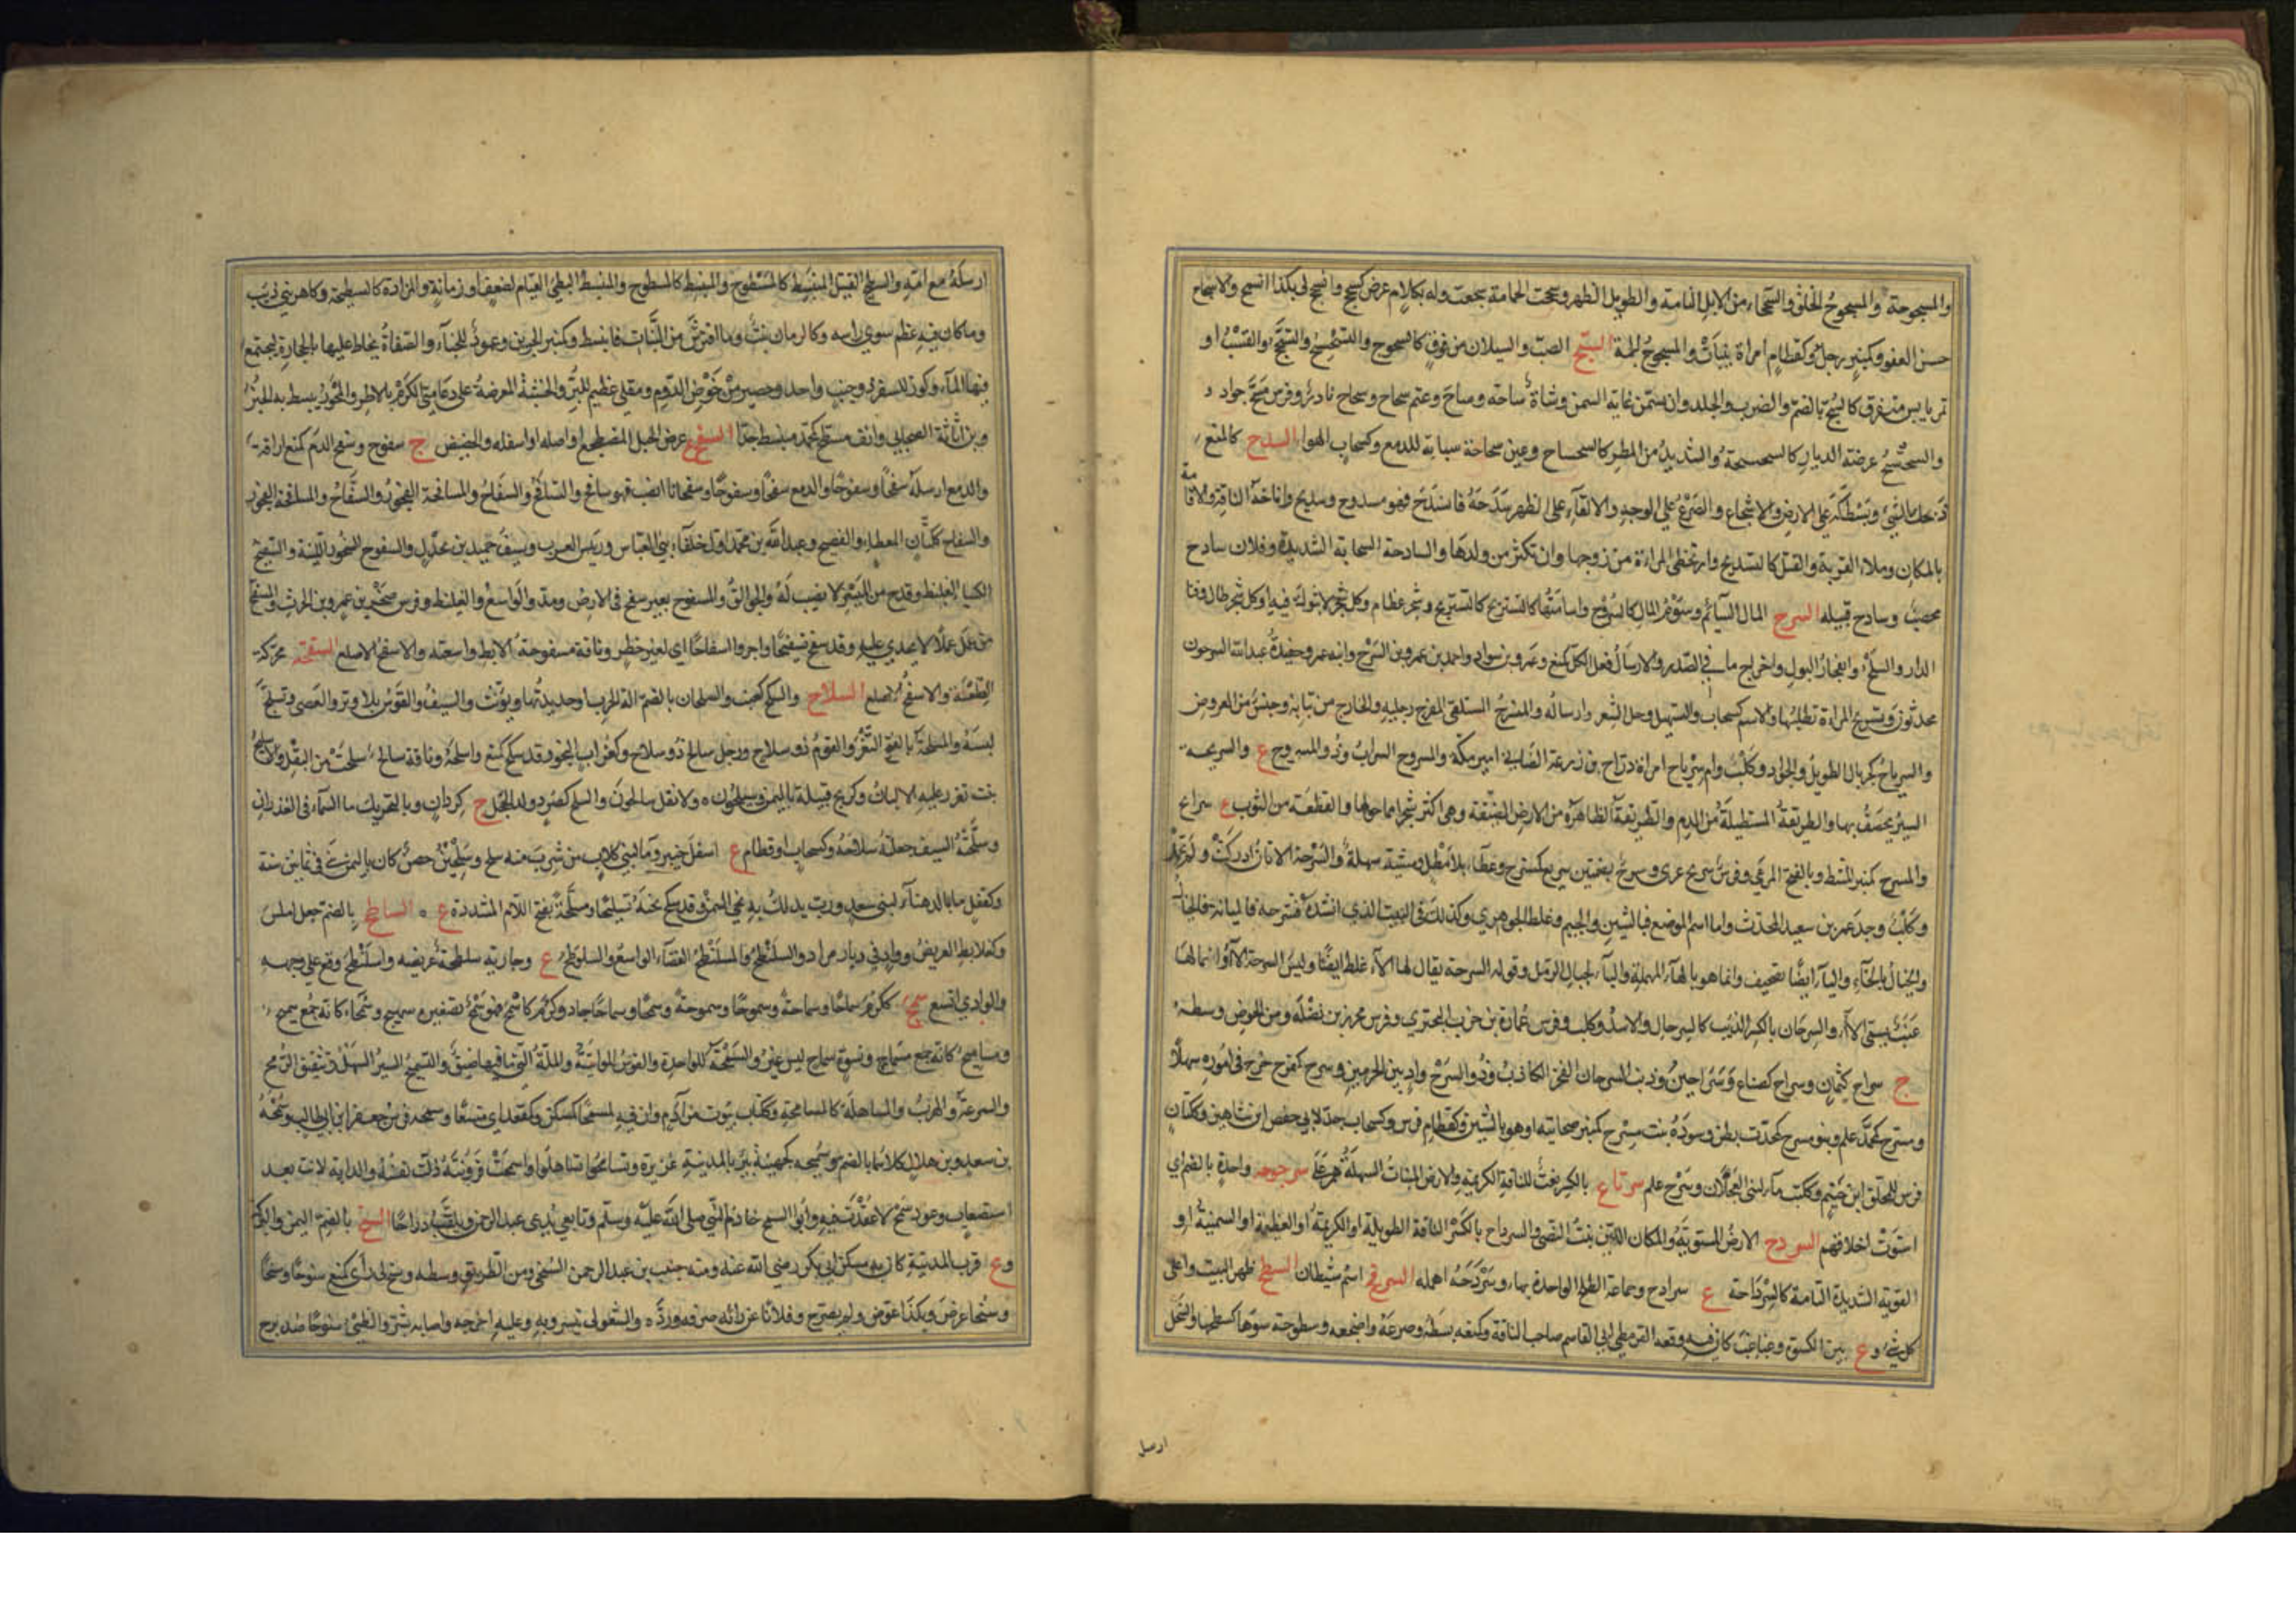 والمسجوحة والمسجوح الخلق والسجحاء من الابل التامة والطويل الظهر وسجحت الحمامة سجعت وله بكلام عرض كسجح وانسجح لي بكذا انسمح والاسجاح
حسن العفو وكمنبر رجل وكقطام امراة تنبأت والمسجوح الجهة السح الصب والسيلان من فوق كالسحوح والتسحسح والتسحح والقسب او
تمر يابس متفرق كالسح بالضم والضرب والجلد وان يسمن غاية السمن وشاة ساحة وساح وغنم سحاح وسحاح نادرة وفرس مسح جواد
والسحسح عرصة الدار كالسحسحة والشديد من المطر كالسحساح وعين سحاحة صبابة للدمع وكسحاب الهواء السدح كالمنع
ذبحك الشيء وبسطكه على الارض والاضجاع والصرع على الوجه والالقاء على الظهر سدحه فانسدح فهو مسدوح وسديح واناخة الناقة والاقامة
بالمكان وملء القربة والقتل كالتسديح وان تحظى المراة من زوجها وان تكثر من ولدها والسادحة السحابة الشديدة وفلان سادح
مخصب وسادح قبيله السرح المال السائم وسوم المال كالسروح واسامتها كالتسريح وشجر عظام وكل شجر لا شوك فيه او كل شجر طال وفناء
الدار والسلح وانفجار البول واخراج ما في الصدر والارسال فعل الكل كمنع وعمرو بن سواد واحمد بن عمرو بن السرح وابنه عمر وحفيده عبد الله السرحيون
محدثون وتسريح المراة تطليقها والاسم كسحاب والتسهيل وحل الشعر وارساله والمنسرح المستلقي المفرج رجليه والخارج من ثيابه وجنس من العروض
والسرياح كجريال الطويل والجواد وكلب وام سرياح امراة دراج بن زرعة الضبابي امير مكة والسروح السراب وذو المسروح ع والسريحة
السير يخصف بها والطريقة المستطيلة من الدم والطريقة الظاهرة من الارض الضيقة وهي اكثر شجرا مما حولها والقطعة من الثوب ع سرائح
والمسرح كمنبر المشط وبالفتح المرعى وفرس سريح عري وسرح بضمتين سريع كمنسرح وعطاء بلا مطل ومشية سهلة والسرحة الاتان ادركت ولم تحمل
وكلب وجد عمر بن سعيد المحدث واما اسم الموضع فبالشين والجيم وغلط الجوهري وكذلك في البيت الذي انشده فسرحة فالمرانة فالخيال
والخيال بالخاء والياء ايضا تصحيف وانما هو بالحاء المهملة والباء لحبال الرمل وقوله السرحة يقال لها الآء غلط ايضا وليس السرحة الآء وانما لها
عنب يسمى الآء والسرحان بالكسر الذئب كالسرحال والاسد وكلب وفرس عمارة بن حرب البحتري وفرس محرز بن نضلة ومن الحوض وسطه
ج سراح كثمان وسراح كضباع وسراحين وذنب السرحان الفجر الكاذب وذو السرح واد بين الحرمين وسرح كفرح خرج في اموره سهلا
ومسرح كمحمد علم وبنو مسرح كمحدث بطن وسودة بنت مسرح كمنبر صحابية او هو بالشين وكقطام فرس وكسحاب جد لابي حفص ابن شاهين وككتان
فرس المحلق ابن حنتم وككتب ماء لبني العجلان وسرح علم سرتاح بالكسر نعت للناقة الكريمة والارض المنبات السهلة هم على سرجوحة واحدة بالضم اي
استوت اخلاقهم السردح الارض المستوية والمكان اللين ينبت النصي والسرداح بالكسر الناقة الطويلة او الكريمة او العظيمة او السمينة او
القوية الشديدة التامة كالسرداحة ع سرادح وجماعة الطلح الواحدة بهاء وسردحه اهمله السرفح اسم شيطان السطح ظهر البيت واعلى
كل شيء و ع بين الكسوة وغباغب كان فيه وقعة القرمطي ابي القاسم صاحب الناقة وكمنعه بسطه وصرعه واضجعه وسطوحه سواها كسطحها والسخل
ارسل
ارسله مع امه والسطيح القتيل المنبسط كالمسطوح والمنبسط البطيء القيام لضعف او زمانة والمزادة كالسطيحة وكاهن بني ذئب
وما كان فيه عظم سوى راسه وكالرمان نبت وما افترش من النبات فانبسط وكمنبر الجرين وعمود للخباء والصفاة يحاط عليها بالحجارة ليجتمع
فيها الماء وكوز للسفر ذو جنب واحد وحصير من خوص الدوم ومقلى عظيم للبر والخشبة المعرضة على دعامتي الكرم بالاطر والمحور يبسط به الخبز
وبن اثاثة الصحابي وانف مسطح كمحمد منبسط جدا السفح عرض الجبل المضطجع او اصله او اسفله والحضيض ج سفوح وسفح الدم كمنع اراقه
والدمع ارسله سفحا وسفوحا والدمع سفحا وسفوحا وسفحانا انصب فهو سافح والتسافح والسفاح والمسافحة الفجور
والسفاح ككتان المعطاء والفصيح وعبد الله بن محمد اول خلفاء بني العباس ورئيس للعرب وسيف حميد بن بحدل والسفوح الصخور اللينة والسفيح
الكساء الغليظ وقدح من الميسر لا نصيب له والجوالق والمسفوح بعير سفح في الارض ومد والواسع والغليظ وفرس صخر بن عمرو بن الحرث والمسفح
من عمل عملا لا يجدي عليه وقد سفح تسفيحا واجروا سفاحا اي لغير خطر وناقة مسفوحة الابط واسعته والاسفح الاصلع السقحة محركة
الصلعة والاسقح الاصلع السلاح والسلح كعنب والسلحان بالضم الة الحرب او حديدتها ويؤنث والسيف والقوس بلا وتر والعصى وتسلح
لبسه والمسلحة بالفتح الثغر والقوم ذوو سلاح ورجل سالح ذو سلاح وكغراب النجو وقد سلح كمنع واسلحه وناقة سالح سلحت من البقل والاسليح
نبت تغزر عليه الالبان وكجريح قبيلة باليمن وسيلحون ة ولا تقل سالحون والسلح كصرد ولد الحجل ج كردان وبالتحريك ماء السماء في الغدران
وسلحته السيف جعلته سلاحه وكسحاب او قطام ع اسفل خيبر وماء لبني كلاب من شرب منه سلح وسلحين حصن كان باليمن بني في ثمانين سنة
وكقفل ماء بالدهناء لبني سعد ورب يدلك به نحي السمن وقد سلح نحيه تسليحا ومسلحة بفتح اللام المشددة ع السلطح بالضم جبل املس
وكعلابط العريض وواد في ديار مراد والسلنطح والمسلنطح الفضاء الواسع والسلوطح ع وجارية سلطحة عريضة واسلنطح وقع على وجهه
والوادي اتسع سمح ككرم سماحا وسماحة وسموحا وسموحة وسمحا وسماحا جاد وكرم كاسمح فهو سمح تصغيره سميح وسمحاء كانه جمع سميح
ومساميح كانه جمع مسماح ونسوة سماح ليس غير والسمحة للواحدة والقوس المواتية والملة التي ما فيها ضيق والتسميح السير السهل وتثقيف الرمح
والسرعة والهرب والمساهلة كالمسامحة وككتاب بيوت من ادم وان فيه لمسمحا كمسكن وكمقعد اي متسعا وسمحة فرس جعفر ابن ابي طالب وسمحة
بن سعد وبن هلال كلاهما بالضم وسميحة كجهينة بئر بالمدينة غزيرة وتسامحوا تساهلوا واسمحت قرونته ذلت نفسه والدابة لانت بعد
استصعاب وعود سمح لا عقدة فيه وابو السمح خادم النبي صلى الله عليه وسلم وتابعي يدعى عبد الرحمن ويلقب دراجا السنح بالضم اليمن والبركة
و ع قرب المدينة كان به مسكن ابي بكر رضي الله عنه ومنه خبيب بن عبد الرحمن السنحي ومن الطريق وسطه وسنح لي رأي كمنع سنوحا وسنحا
وسنحا عرض وبكذا عرض ولم يصرح وفلانا عن رائه صرفه ورده والشعر لي تيسر وبه وعليه احرجه واصابه بشر والظبي سنوحا ضد برح